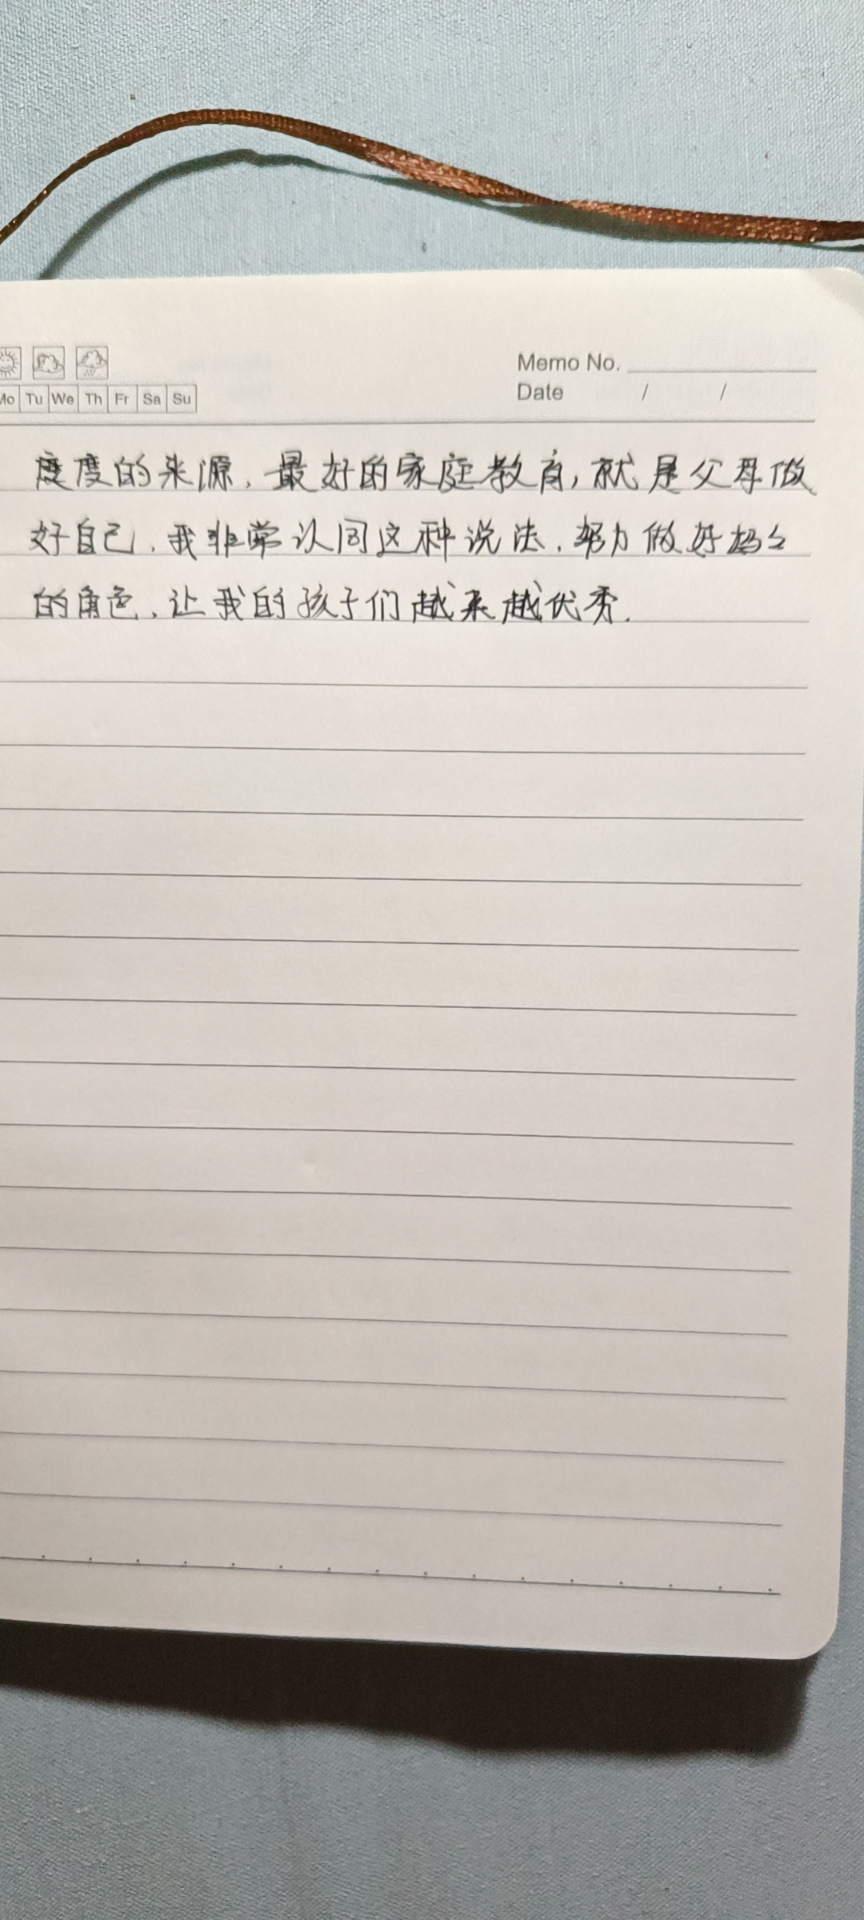 Memo No.
Mo Tu We Th Fr Sa Su
Date / /
度度的来源，最好的家庭教育，就是父母做
好自己，我非常认同这种说法，努力做好妈々
的角色，让我的孩子们越来越优秀.